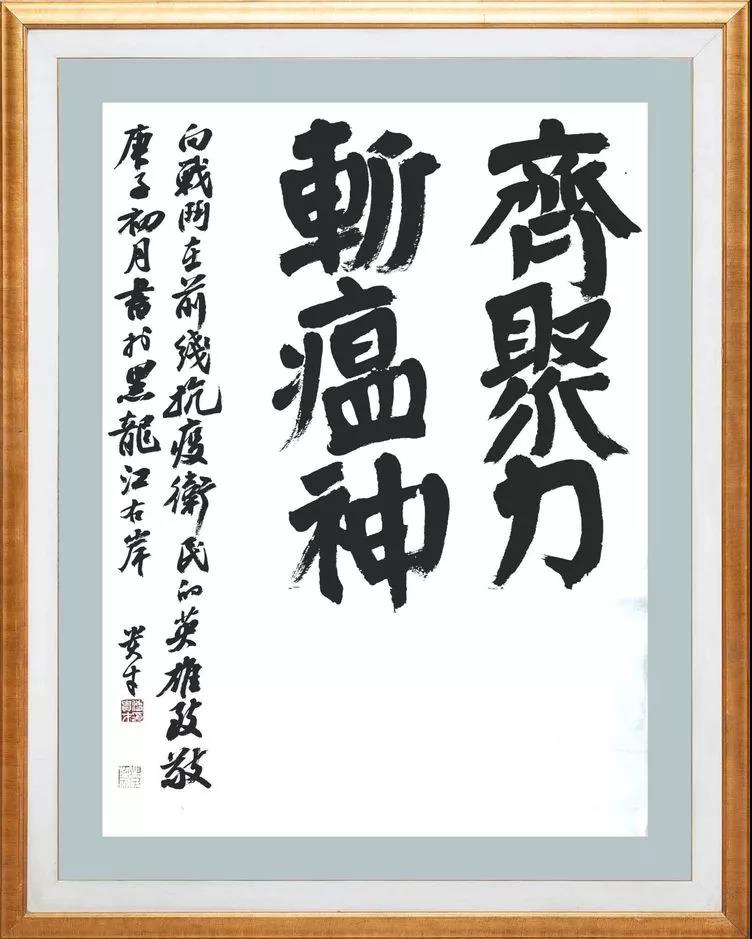 齊聚力
斬瘟神
向戰鬥在前綫抗疫衛民的英雄致敬
庚子初月書於黑龍江右岸
贵才